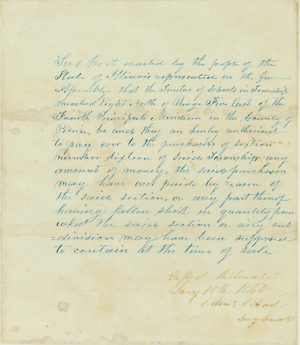 Sec 1 Be it enacted by the people of the
State of Illinois represented in the General
Assembly, that the Trustees of Schools in Township
number Eight North of Range Five East of the
Fourth Principal Meridian in the County of
Peoria, be and they are hereby authorised
to pay over to the purchasers of section
number sixteen of said Township any
amount of money, the said purchasers
may have over paid by reason of
the said section, or any part thereof
having fallen short in quantity from
what the said section or any sub
=division may have been supposed
to contain at the time of sale
Senate
Jany 18th
Secy Senate